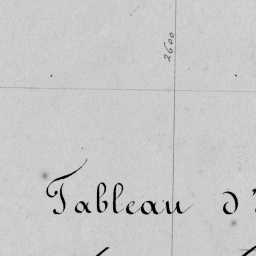 2600
Tableau d'